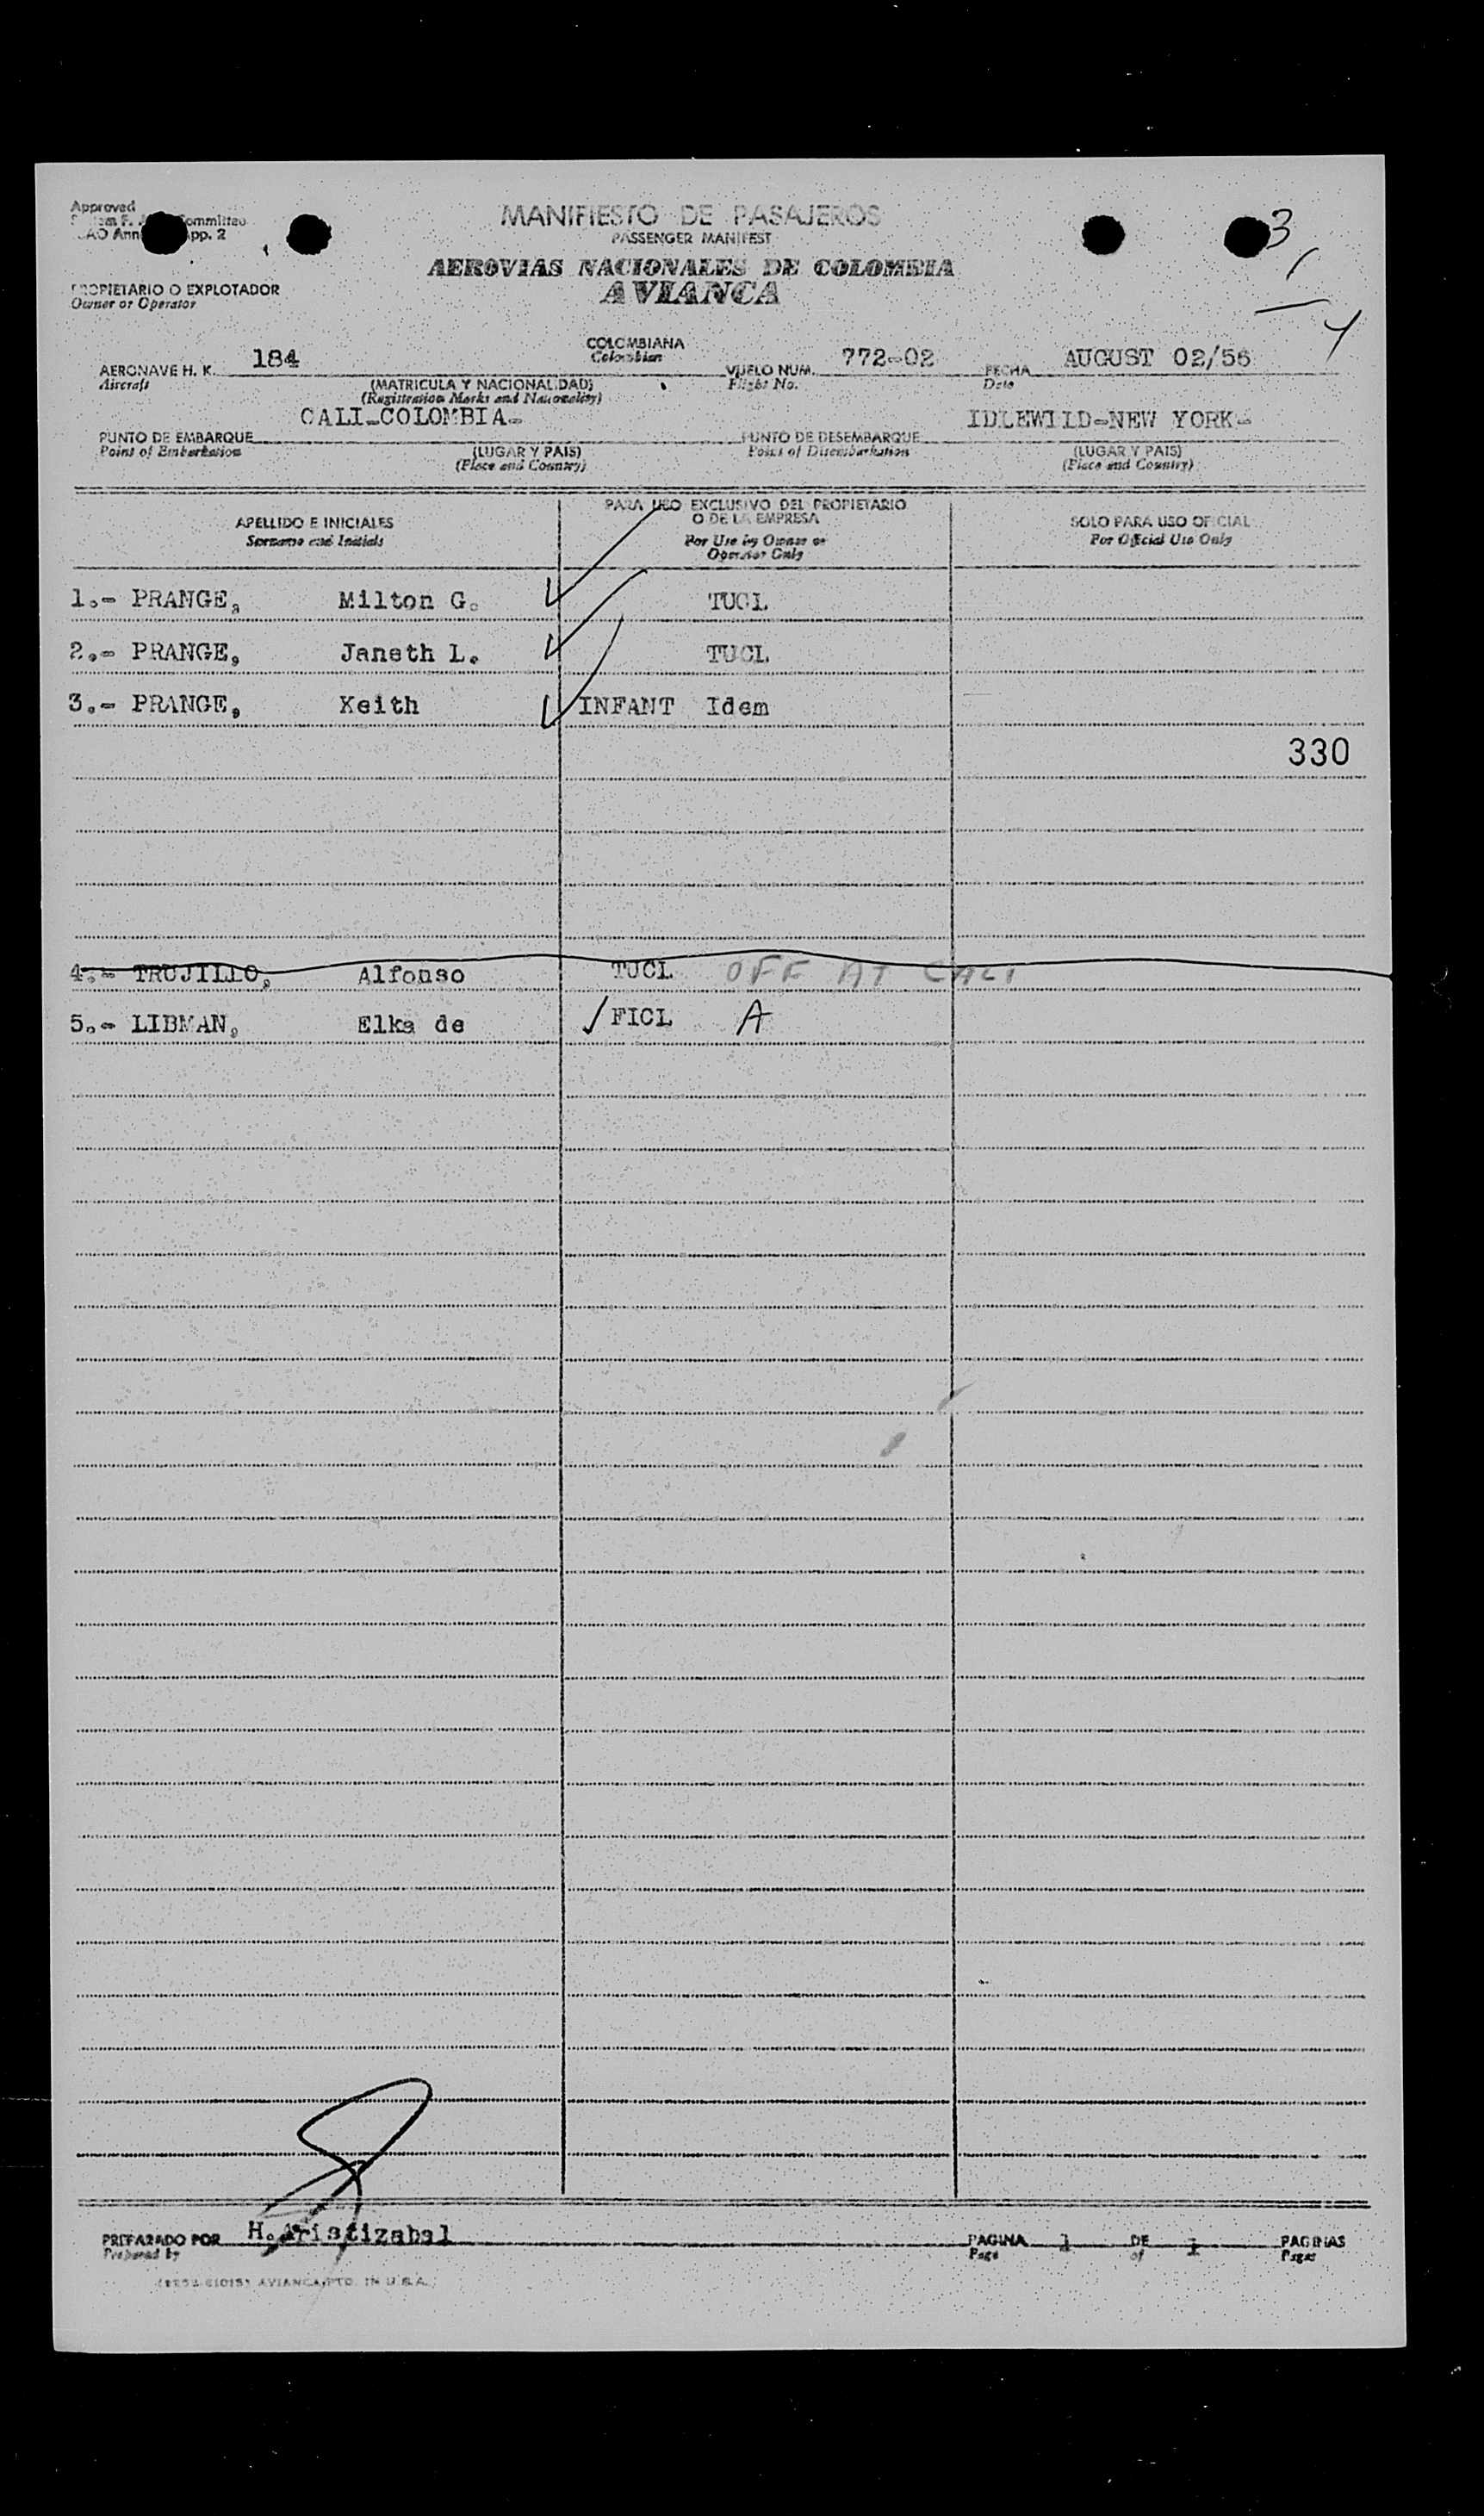 Approved
MANIFIESTO DE PASAJEROS
PASSENGER MANIFEST
AEROVIAS NACIONALES DE COLOMBIA
AVIANCA
PROPIETARIO O EXPLOTADOR
Owner or Operator
3
1
4
AERONAVE H. K. 184 COLOMBIANA VUELO NUM. 772-02 FECHA AUGUST 02/56
Aircraft Colombian Flight No. Date
(MATRICULA Y NACIONALIDAD)
(Registration Marks and Nationality)
PUNTO DE EMBARQUE CALI-COLOMBIA- PUNTO DE DESEMBARQUE IDLEWILD-NEW YORK-
Point of Embarkation (LUGAR Y PAIS) Point of Disembarkation (LUGAR Y PAIS)
(Place and Country) (Place and Country)
APELLIDO E INICIALES PARA USO EXCLUSIVO DEL PROPIETARIO O DE LA EMPRESA SOLO PARA USO OFICIAL
Surname and Initials For Use by Owner or Operator Only For Official Use Only
1.- PRANGE, Milton G. TUCL
2.- PRANGE, Janeth L. TUCL
3.- PRANGE, Keith INFANT Idem
330
4.- TRUJILLO, Alfonso TUCL OFF AT CALI
5.- LIBMAN, Elka de ✓ FICL A
PREPARADO POR H. Aristizabal PAGINA 1 DE 1 PAGINAS
Prepared by Page of Pages
AVIANCA PTD. IN U.S.A.